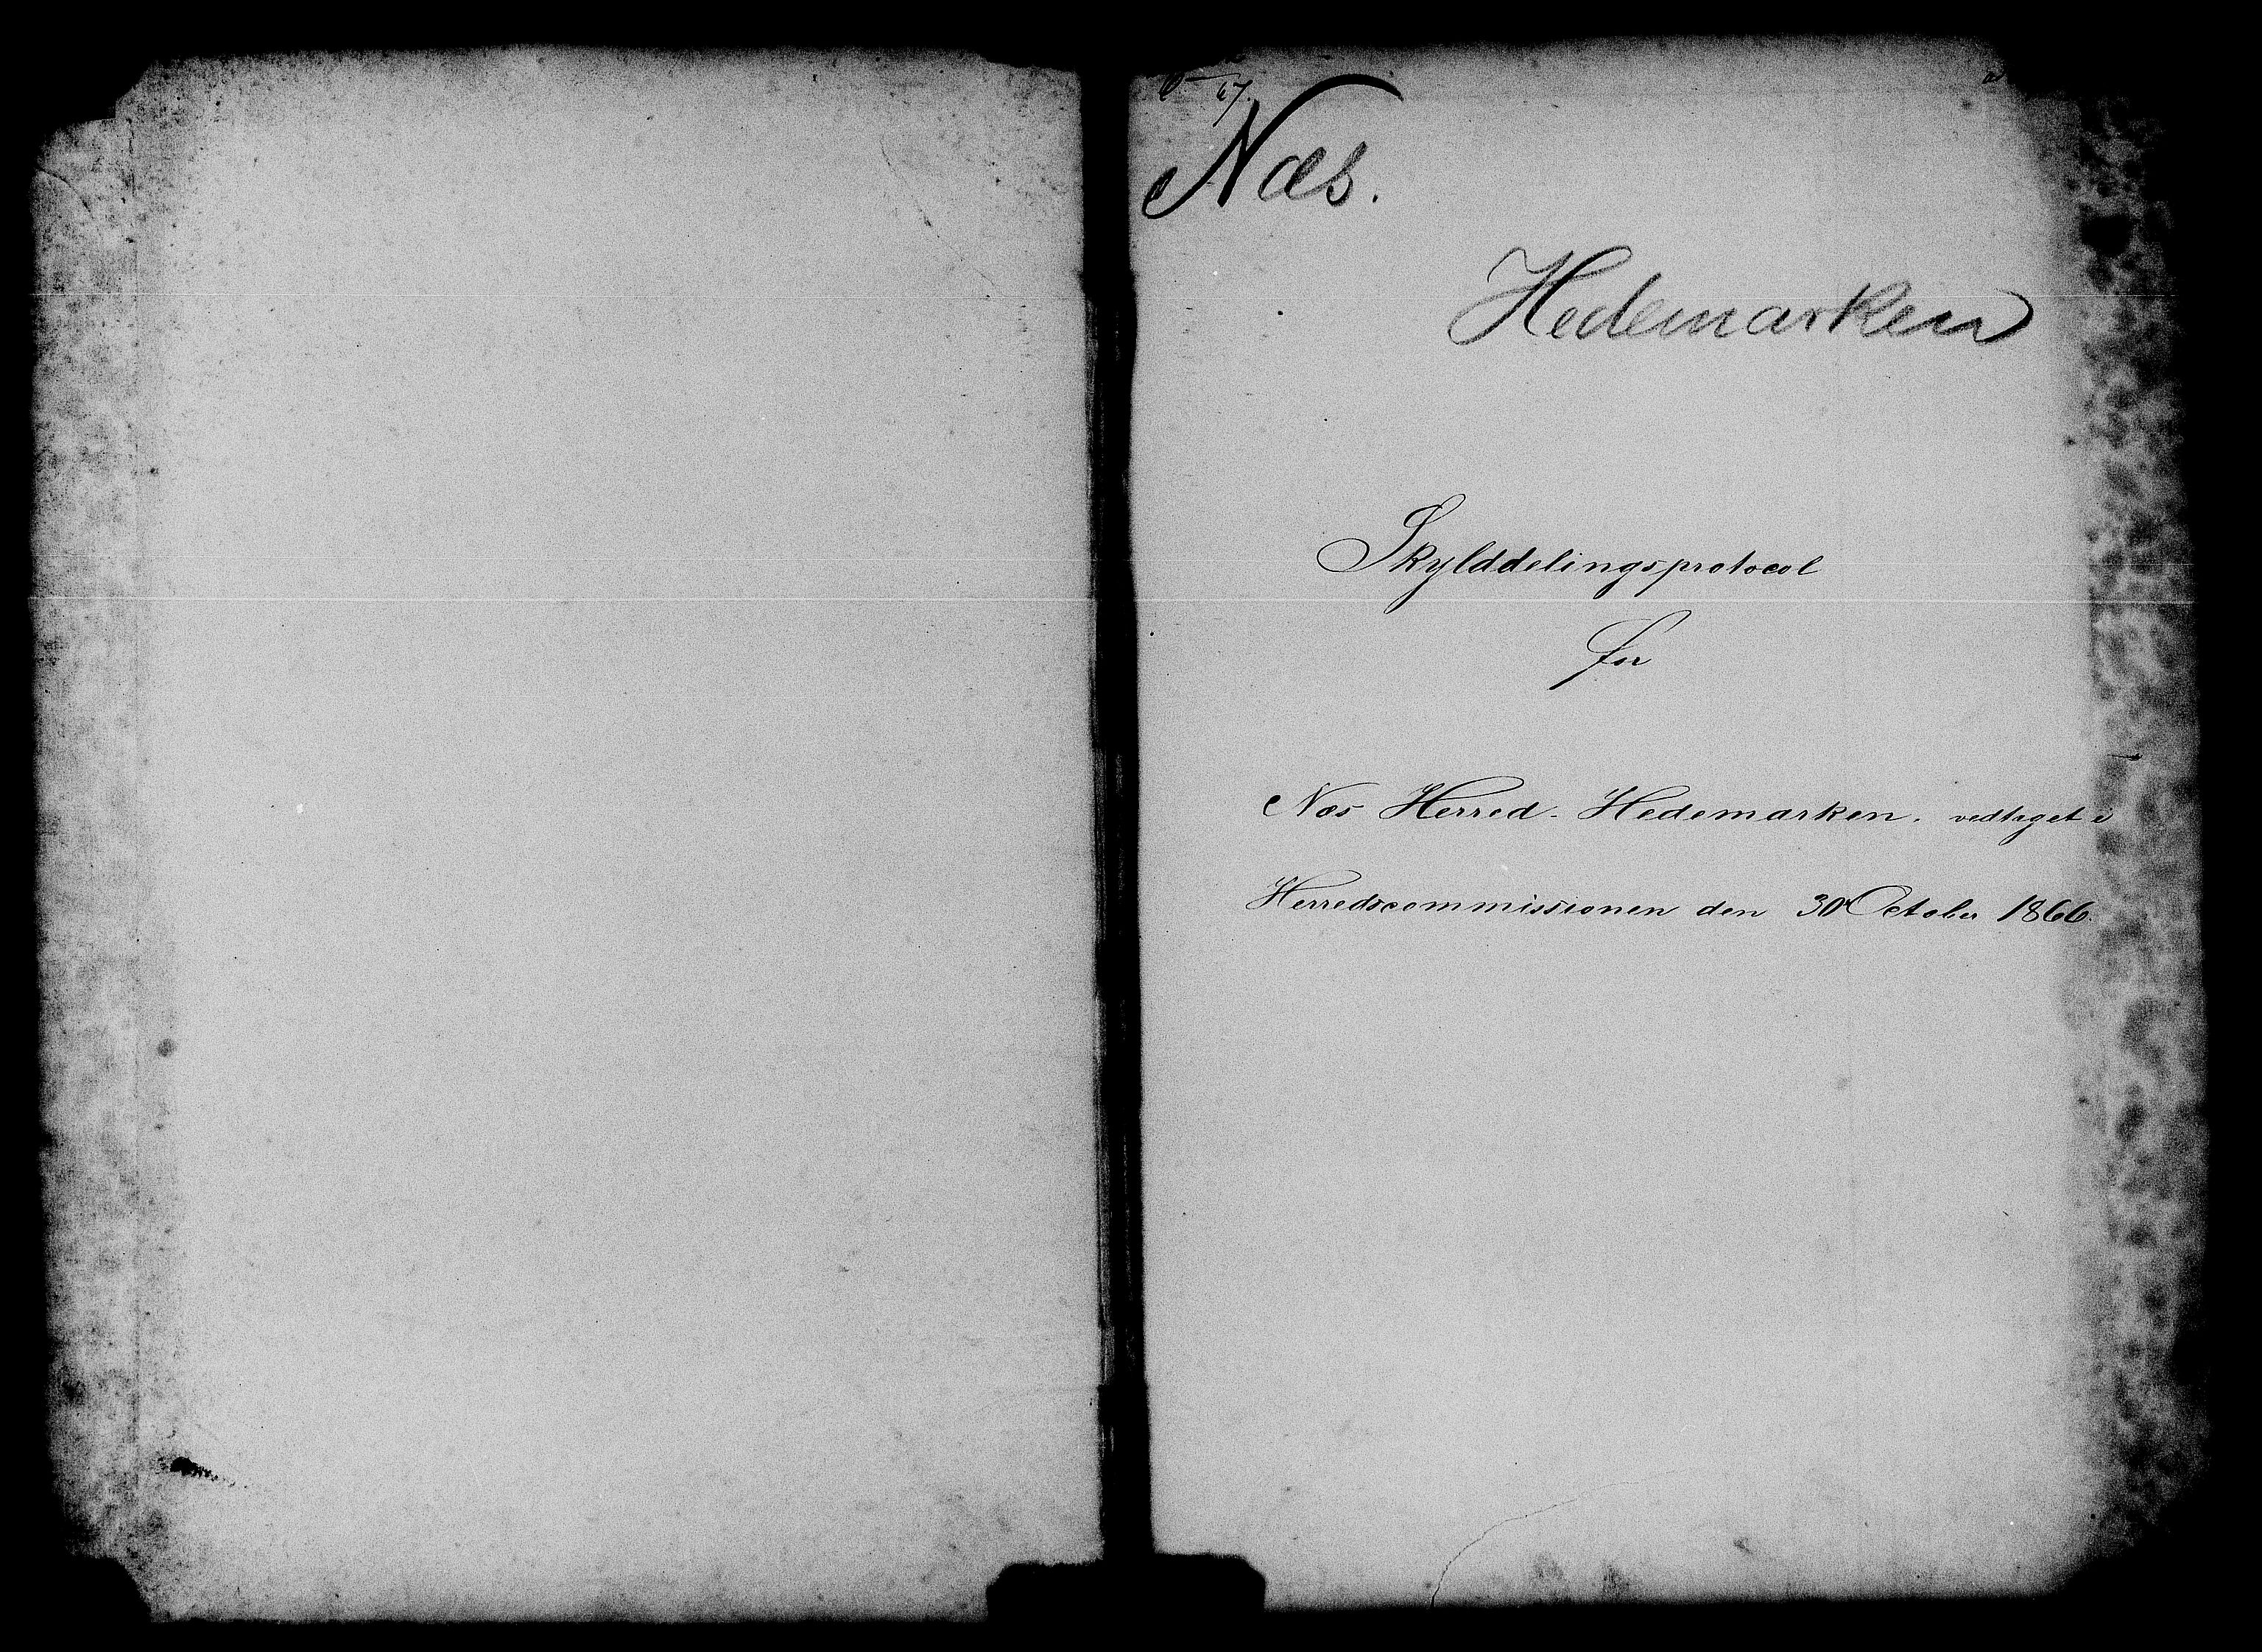 67.
Næs.
Hedemarken
Skylddelingsprotocol
for
Næs Herred. Hedemarken. vedtaget i
Herredscommissionen den 30 October 1866.